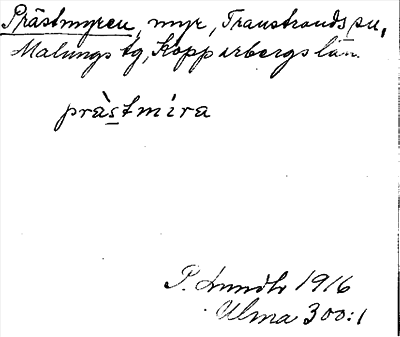 Prästmyren, myr, Transtrands sn,
Malungs tg, Kopparbergs län.
prȁstmira
P. Lundbr 1916
Ulma 300:1